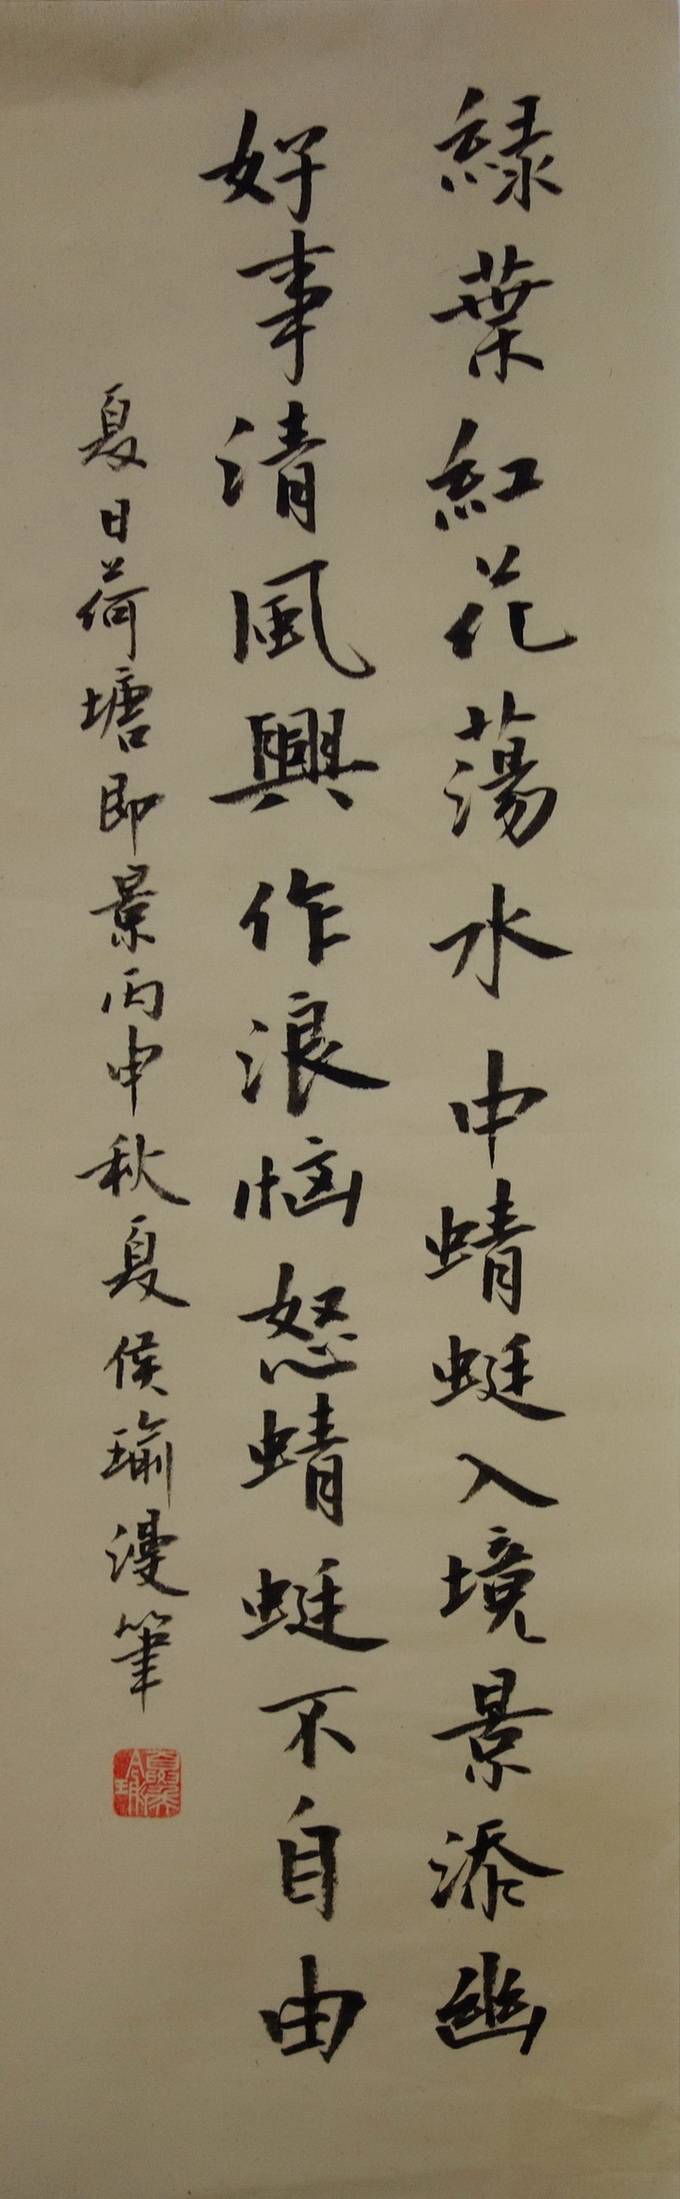 緑葉紅花蕩水中蜻蜓入境景添幽
好事清風興作浪惱怒蜻蜓不自由
夏日荷塘即景丙申秋夏侯瑜漫筆